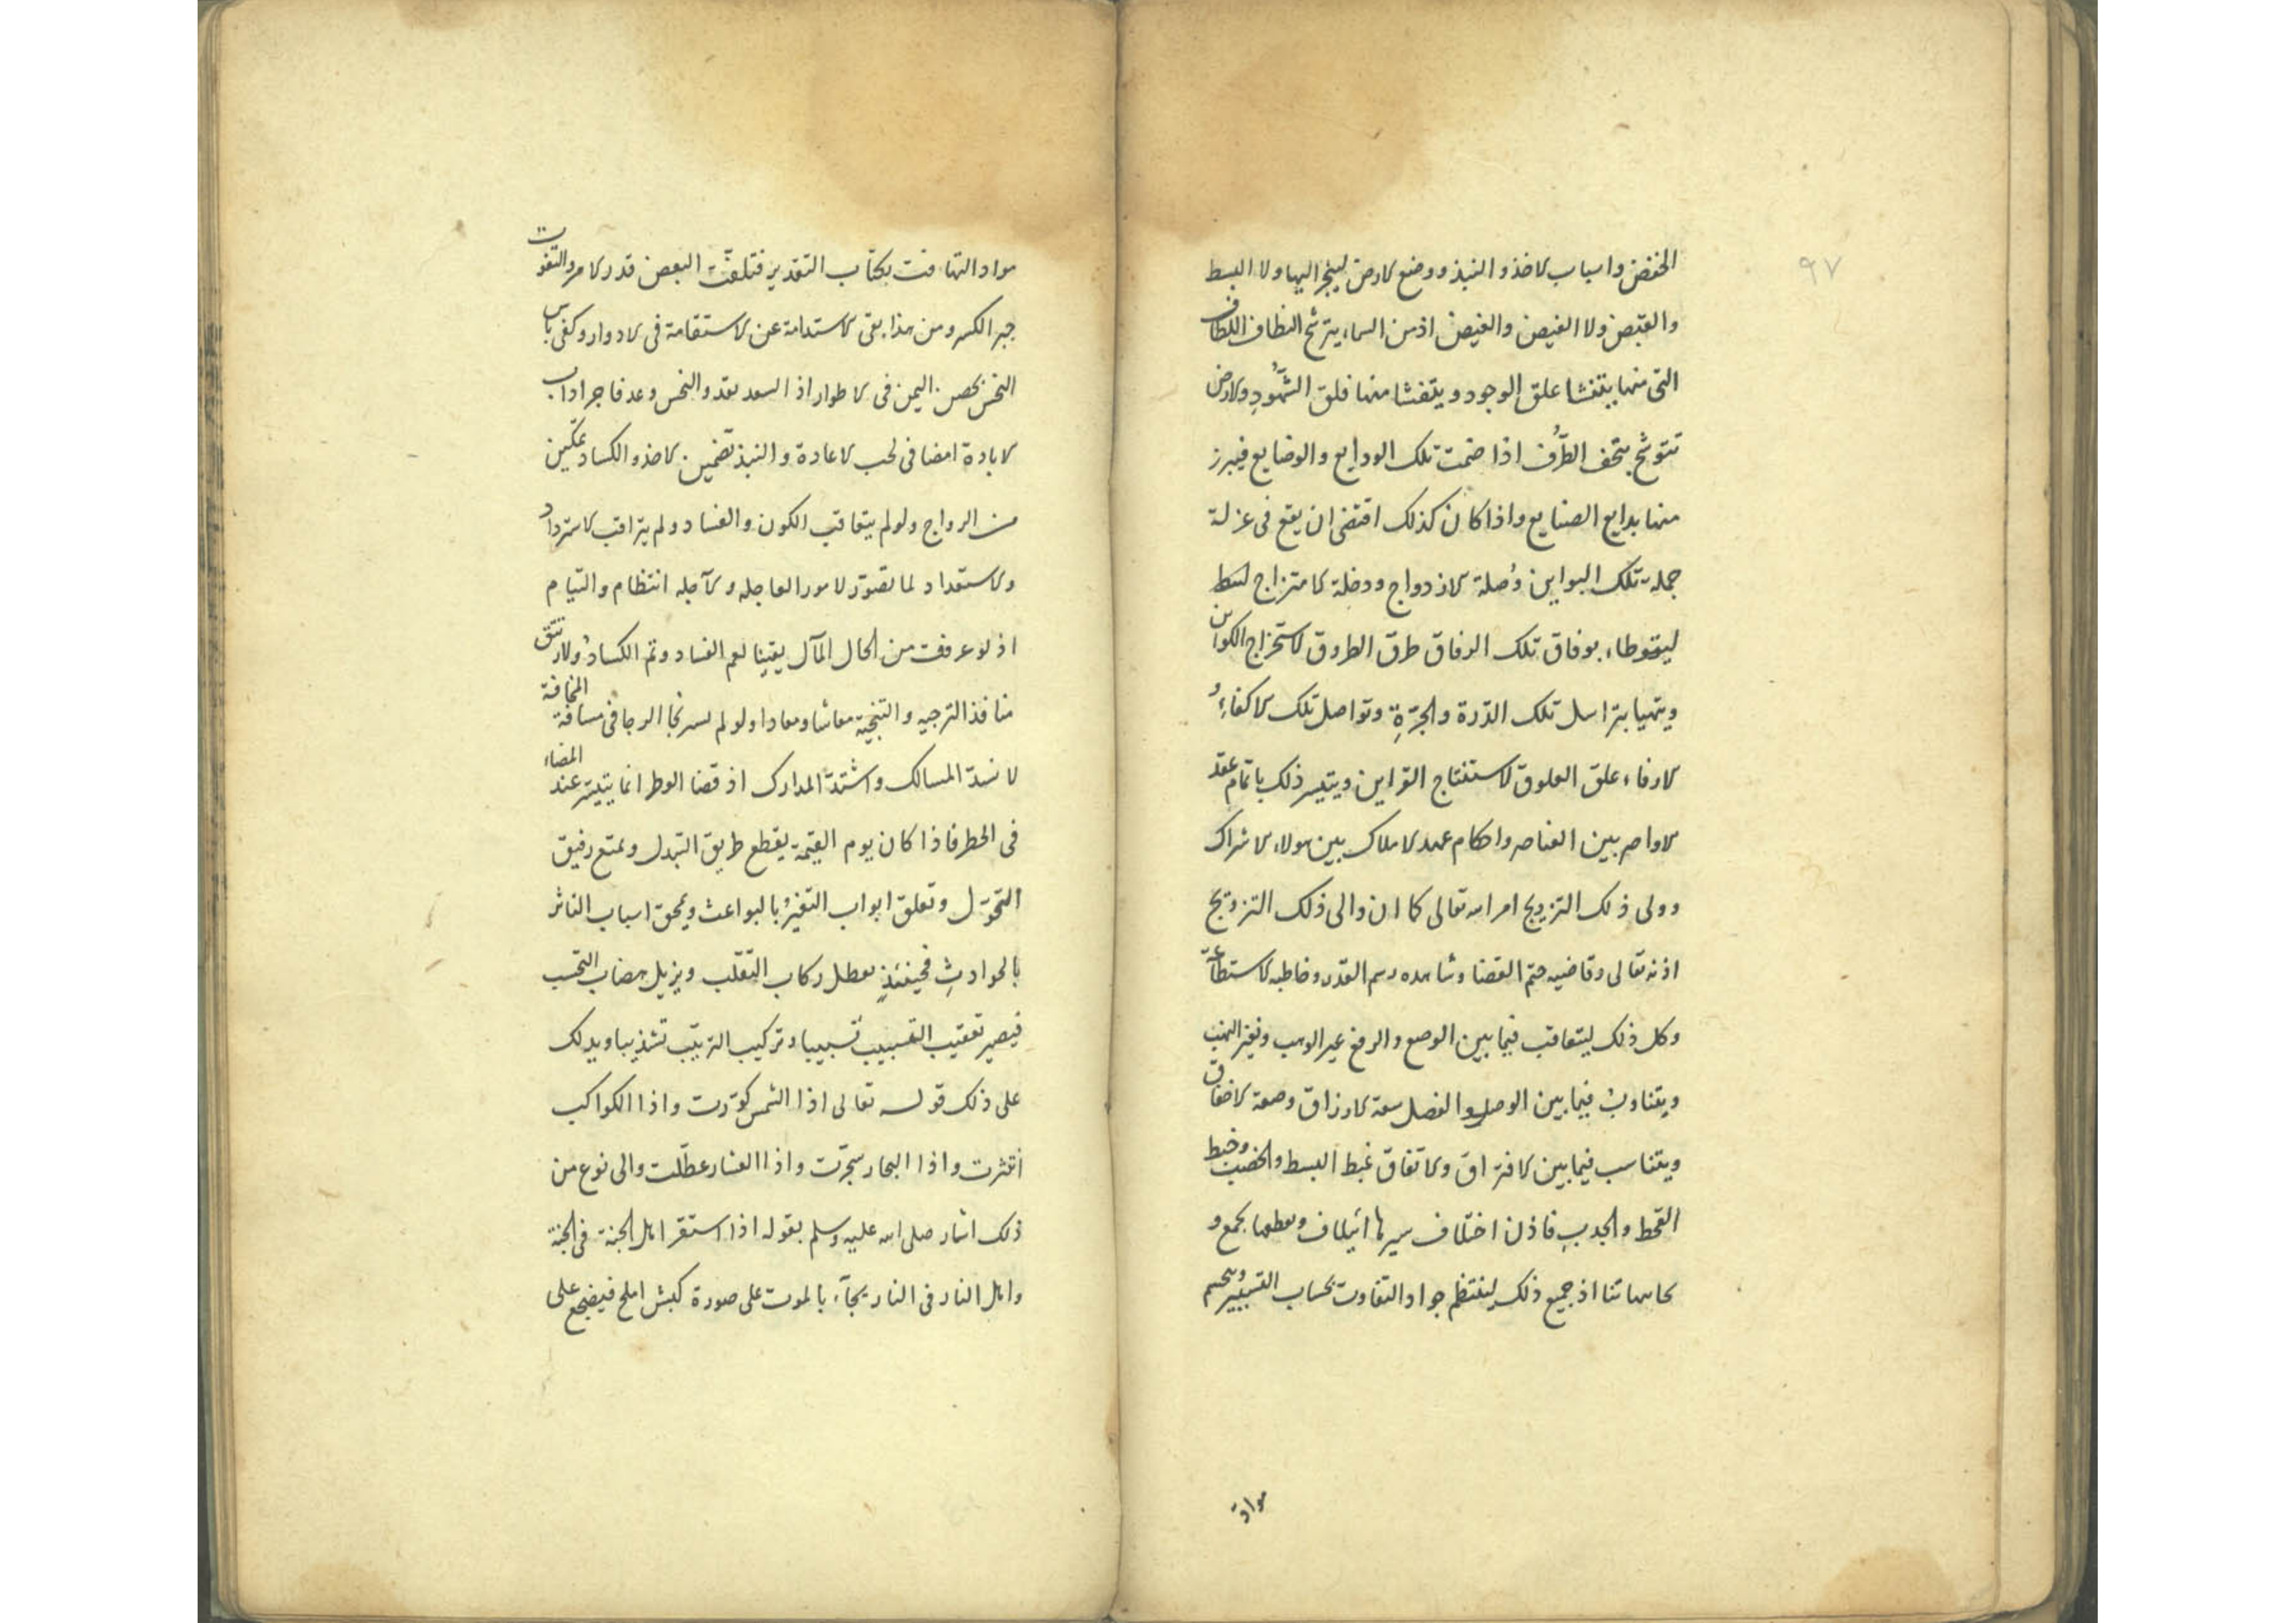 ٩٧
الخفض واسباب الاخذ والنبذ ووضع الارض لينجز اليها ولا البسط
والقبض ولا الفيض والغيض اذ من السماء يترشح النطاف اللطاف
التى منها يتنشا علق الوجود ويتفشا منها فلق الشهود والارض
تتوشح بتحف الطرف اذا ضمت تلك الودايع والوضايع فيبرز
منها بدايع الصنايع واذا كان كذلك اقتضى ان يقع فى عزلة
جملة تلك البواين وصلة الازدواج ودخلة الامتزاج
بوفاق تلك الرفاق طرق الطروق لاستخراج الكوائن
ويتهيا بتراسل تلك الدرة والجرة وتواصل تلك الاكفاء
الارفاء علق العلوق لاستنتاج القراين ويتيسر ذلك باتمام عقد
الاواصر بين العناصر واحكام عهد الاملاك بين هولاء الاشراك
وولى ذلك التزويج امر الله تعالى كما ان والى ذلك الترويج
اذنه تعالى وقاضيه حتم القضا وشاهده رسم القدر وخاطبه الاستطاعة
وكل ذلك ليتعاقب فيما بين الوضع والرفع
ويتناوب فيما بين الوصل والفصل سعة الارزاق وصعة الاخفاق
ويتناسب فيما بين الافتراق والاتفاق غبط البسط والخصب وخبط
القحط والجدب فاذن اختلاف سيرها ائتلاف وبعطها بجمع و
تنا اذ جميع ذلك لينتظم جواد التفاوت بحساب التسيير
مواد
مواد التهافت بكتاب التقدير فتلفت البعض قدر الامر والتفوت
جبر الكسر ومن هذا بقى الاستدامة عن الاستقامة فى الادوار وكفى باس
النحس اليمن فى الاطوار اذ السعد بعد والنحس وعد فاجر اداب
الابادة امضا فى لحب الاعادة والنبذ تضمين الاخذ والكساد تمكين
من الرواج ولو لم يتعاقب الكون والفساد ولم يتراقب الاسترداد
والاستعداد لما تصور الامور العاجله والآجله انتظام والتيام
اذ لو عرفت من الحال المآل يقينا لعم الفساد وتم الكساد
منافذ الترجيه والتنجية معاشا ومعادا ولو لم الرجا فى مسافة المخافة
لانسد المسالك واشتد المدارك اذ قضا الوطر انما يتيسر عند المضاء
فى الخطر فاذا كان يوم القيمة يقطع طريق التبدل ويمتع رفيق
التحول وتغلق ابواب التغير بالبواعث ويمحق اسباب التاثر
بالحوادث فحينئذ يعطل ركاب التقلب ويزيل
فيصير تعقيب التسبيب تسبيبا وتركيب الترتيب تشذيبا ويدلك
على ذلك قوله تعالى اذا الشمس كورت واذا الكواكب
انتثرت واذا البحار سجرت واذا العشار عطلت والى نوع من
ذلك اشار صلى الله عليه وسلم بقوله اذا استقر اهل الجنة فى الجنة
واهل النار فى النار يجآء بالموت على صورة كبش املح فيضجع على